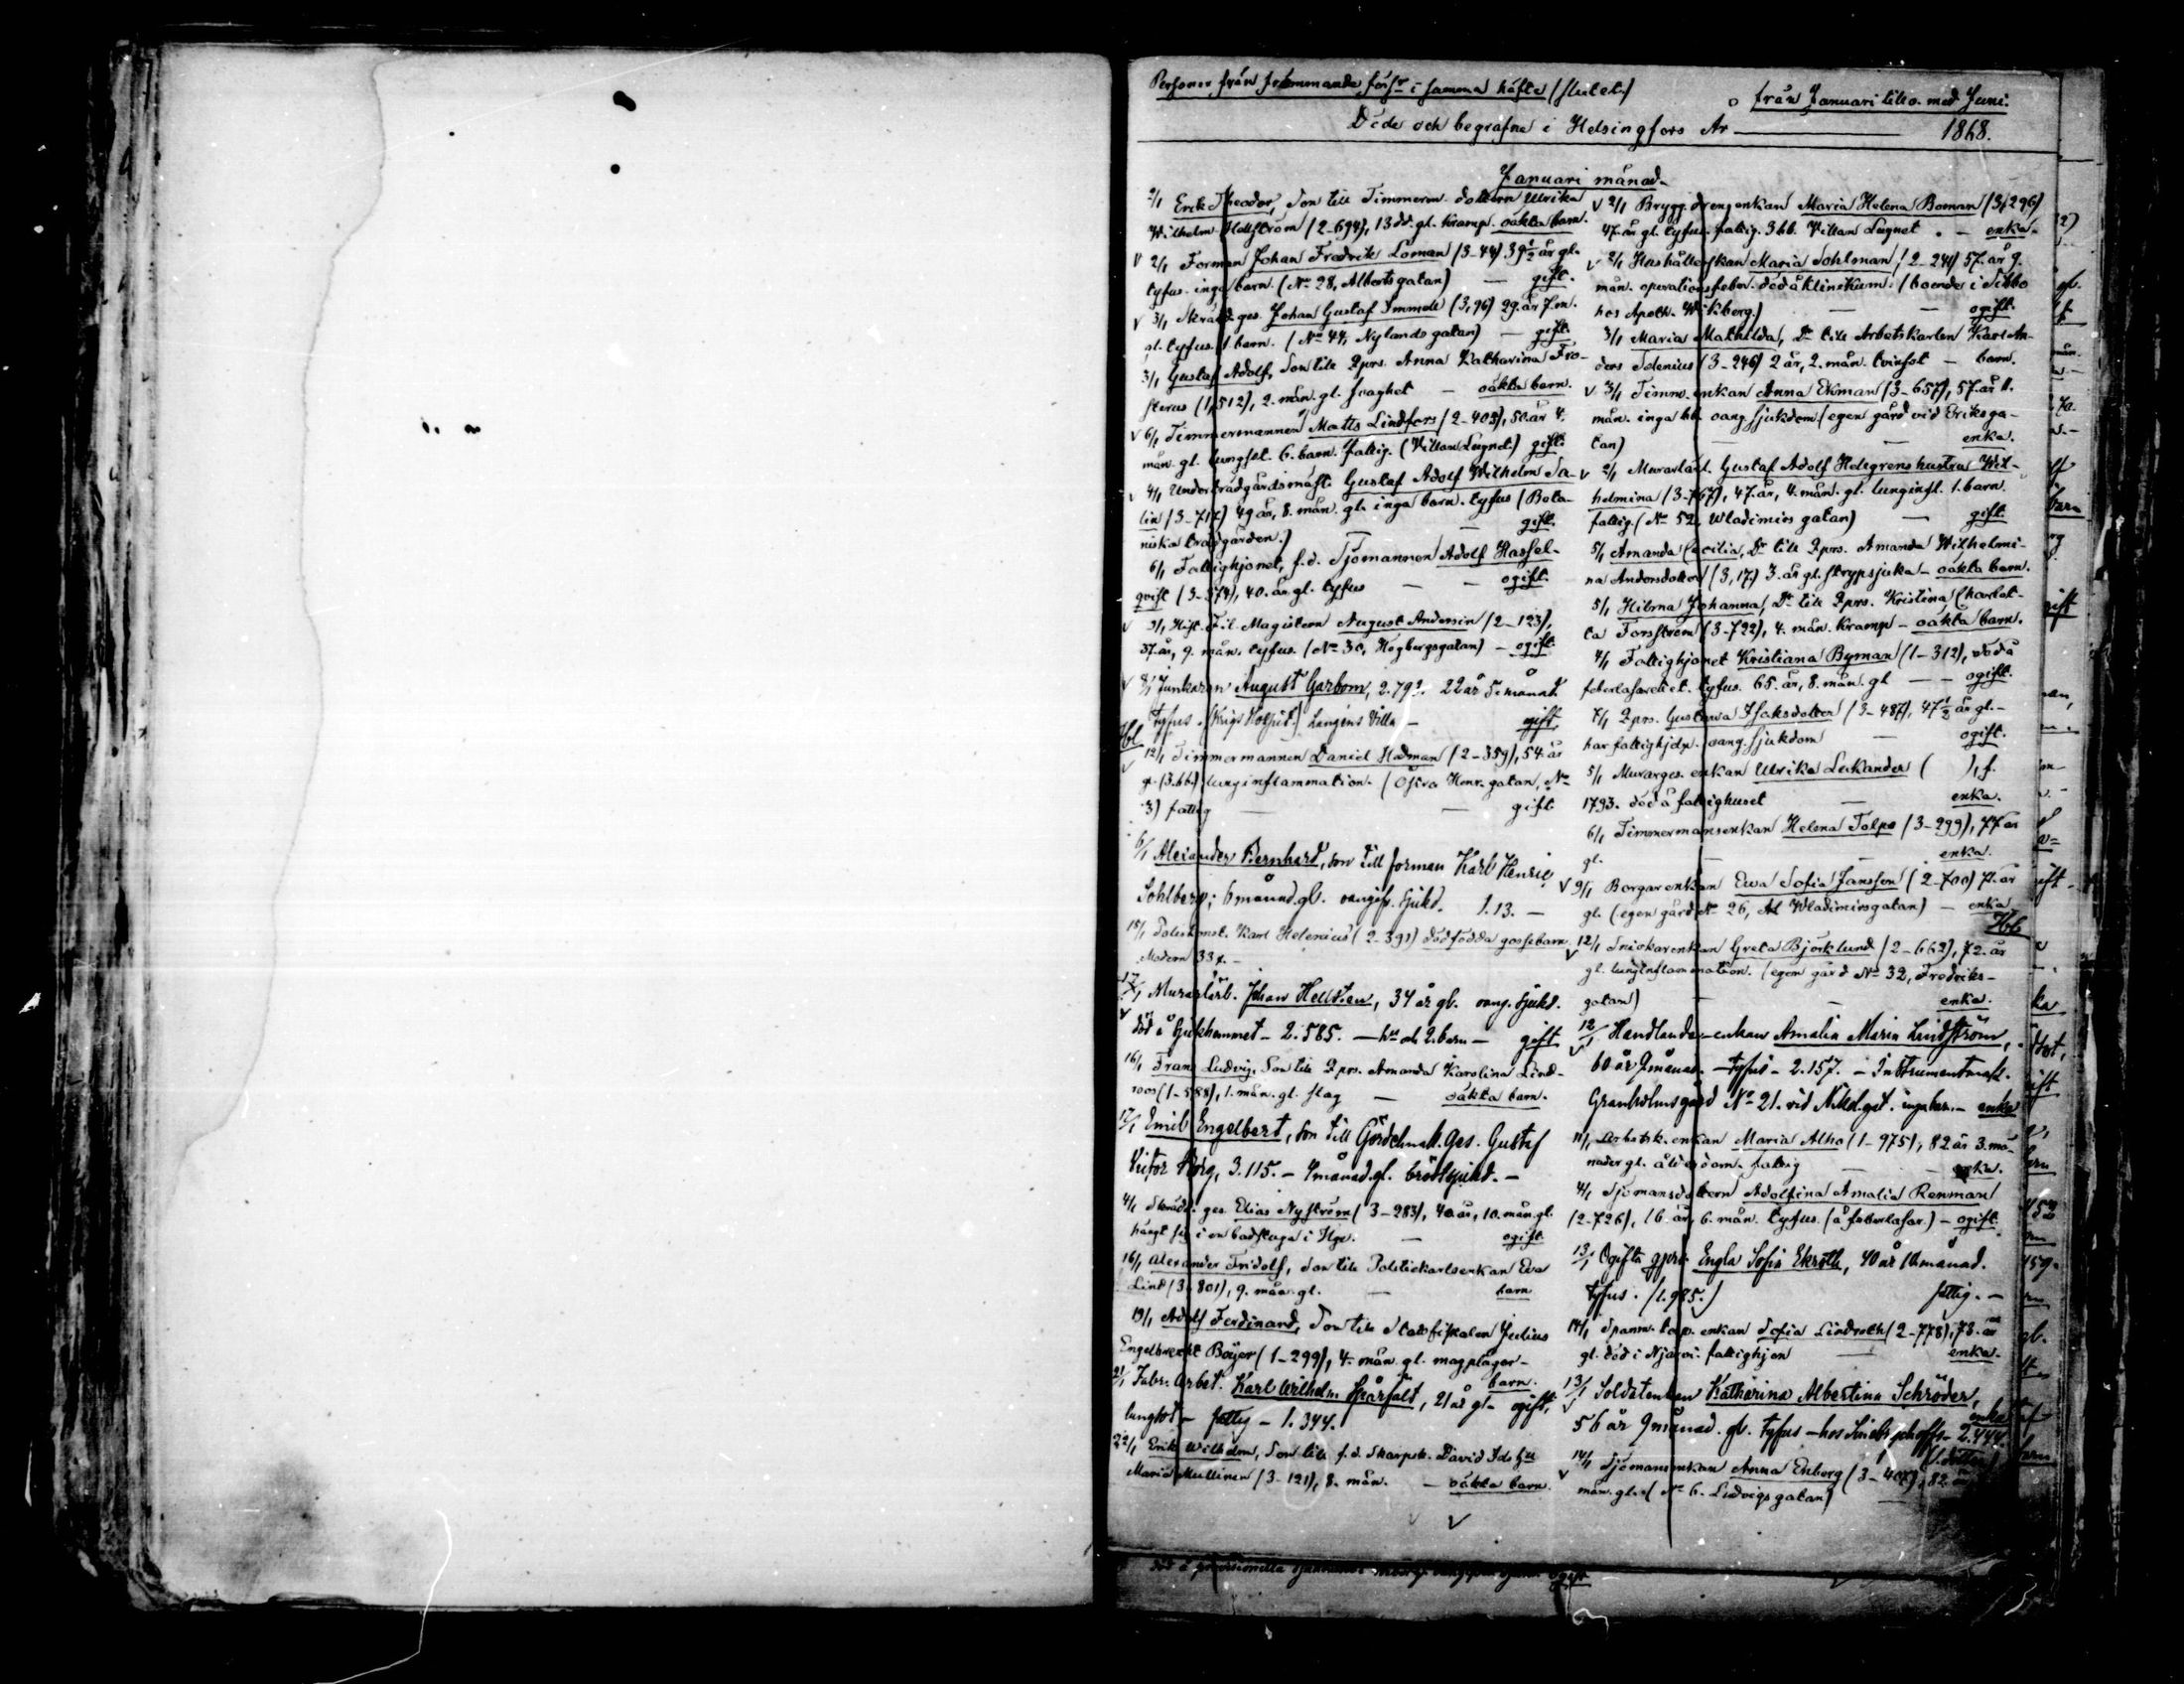 Personer från främmande förs:r i samma häfte (slutet)
från Januari till o. med Juni.
Döde och begrafne i Helsingfors År 1868.
Januari månad.
2/1 Erik Theodor, Son till Timmerm. dottern Ulrika
Wilhelm Hellström (2-694), 13 dd. gl. kramp. oäkta barn.
V 2/1 Forman Johan Fredrik Loman (3-44) 39 1/2 år gl.
tyfus. inga barn. (No 28, Albertsgatan) — gift.
V 3/1 Skrädd. ges. Johan Gustaf Immell (3,96) 29. år 7. m.
gl. tyfus. 1 barn. (No 44, Nylands gatan) — gift.
3/1 Gustaf Adolf, Son till Qprs. Anna Katharina Fro-
sterus (1,512), 2. mån. gl. svaghet — oäkta barn.
V 6/1 Timmermannen Matts Lindfors (2-403), 50. år 4.
mån. gl. lungsot. 6. barn. fattig. (Villan Lugnet) gift.
V 4/1 Underträdgårdsmäst. Gustaf Adolf Wilhelm Sa-
lin (3-717) 49 år, 8. mån. gl. inga barn. tyfus (Bota-
niska trädgården.) — gift.
6/1 Fattighjonet, f.d. Sjömannen Adolf Hassel-
qvist (3-574), 40. år gl. tyfus — — ogift.
V 9/1 Fil. Magistern August Andersin (2-123),
37. år, 9. mån. tyfus. (No 30, Högbergsgatan) — ogift.
V 8/1 Junkaren August Garbom, 2.793. 22 år 5 månad.
Tyfus. (Krigs Hospit.) Langens Villa — gift
Hbl
V 12/1 Timmermannen Daniel Hedman (2-359), 54. år
gl. (3. bb.) lunginflammation. (Östra Henr. gatan, No
3) fattig — — gift
6/1 Alexander Bernhard, son till forman Karl Henric
Sohlberg; 6 månad. gl. oangif. sjukd. 1.13. —
15/1 Poliskonst. Karl Helenius (2-391) dödfödda gossebarn.
Modern 33 å. —
V 17/1 Murarlärl. Johan Hellsten, 34 år gl. oang. sjukd.
död å Sjukhemmet — 2.585. — hu och 2. barn — gift
16/1 Frans Ludvig, Son till Qprs. Amanda Karolina Lind-
roos (1-588), 1. mån. gl. slag — oäkta barn.
17/1 Emil Engelbert, Son till Gördelmak. Ges. Gustaf
Victor Borg, 3.115. — 4 månad. gl. bröstsjukd. —
4/1 Skrädd. ges. Elias Nyström (3-283), 40 år, 10. mån. gl.
hängt sig i en badstuga i Hge. — ogift.
16/1 Alexander Fridolf, Son till Politiekarlsenkan Eva
Lind (3-801), 9. mån. gl. — barn
19/1 Adolf Ferdinand, Son till Stadsfiskalen Julius
Engelbrecht Böijer (1-299), 4. mån. gl. magplågor — barn.
21/1 Fabr. Arbet. Karl Wilhelm Skärfält, 21 år gl — ogift,
lungsot — fattig — 1.344.
22/1 Erik Wilhelm, Son till f.d. Skarpsk. David Ids hu
Maria Mullinen (3-121), 8. mån. — oäkta barn.
V 2/1 Brygg. drengenkan Maria Helena Boman (3,296)
47. år gl. tyfus. fattig. 3 bb. Villan Lugnet. — enka.
V 2/1 Hushållerskan Maria Sohlman (2-241) 57. år 9.
mån. operationsfeber. död å klinikum. (boende i Sibbo
hos Apoth. Wikberg.) — — ogift.
3/1 Maria Mathilda, Dr till Arbetskarlen Karl An-
ders Selenius (3-246) 2 år, 2. mån. tvinsot — barn.
V 3/1 Timm. enkan Anna Ekman (3-657), 57. år 11.
mån. inga bb. oang. sjukdom (egen gård vid Eriksga-
tan) — — enka.
V 2/1 Murarlärl. Gustaf Adolf Hellgrens hustru Wil-
helmina (3-767), 47. år, 4. mån. gl. lunginfl. 1. barn.
fattig. (No 52, Wladimirs gatan) — gift.
5/1 Amanda Cecilia, Dr till Qprs. Amanda Wilhelmi-
na Andersdotter (3,17) 3. år gl. strypsjuka — oäkta barn.
5/1 Hilma Johanna, Dr till Qprs. Kristina Charlot-
ta Forsström (3-722), 4. mån. Kramp — oäkta barn.
4/1 Fattighjonet Kristiana Byman (1-312), död å
feberlasarettet. tyfus. 65. år, 8. mån. gl — — ogift.
7/1 Qprs. Gustava Isaksdotter (3-487), 47 1/2 år gl. —
har fattighjelp. oang. sjukdom — ogift.
5/1 Murarges. enkan Ulrika Leckander ( ), f.
1793. död å fattighuset — enka.
6/1 Timmermansenkan Helena Talpo (3-299), 77 år
gl. — — enka.
V 9/1 Borgarenkan Ewa Sofia Jansson (2-700) 71. år
gl. (egen gård No 26, Wladimirsgatan) — enka
Hbl
V 12/1 Snickarenkan Greta Björklund (2-662), 72. år
gl. lunginflammation. (egen gård No 32, Fredriks-
gatan) — — enka.
V 12/1 Handlandeenkan Amalia Maria Lindström,
60 år 9 månad. — tyfus — 2.157. — Instrumentmak.
Granholms gård No 21. vid Nikol.gat. inga barn. — enka
11/1 Arbetsk. enkan Maria Alho (1-975), 82 år 3. må-
nader gl. ålderdom. fattig — — enka.
4/1 Sjömansdottern Adolfina Amalia Renman
(2-726), 16. år, 6. mån. tyfus. (å feberlasar.) — ogift.
13/1 Ogifta qprs Engla Sofia Ekroth, 40 år 10 månad.
tyfus. (1.985.) fattig. —
14/1 Spanm. kap. enkan Sofia Lindroth (2-778), 73. år
gl. död i Njarvi. fattighjon — enka.
V 13/1 Soldatenkan Katharina Albertina Schröder, enka
56 år 9 månad. gl. tyfus — hos Sinebrychoffs — 2.444.
(1. dotter)
V 14/1 Sjömansenkan Anna Enberg (3-407), 82.
mån. gl. (No 6. Ludvigs gatan)
ogift